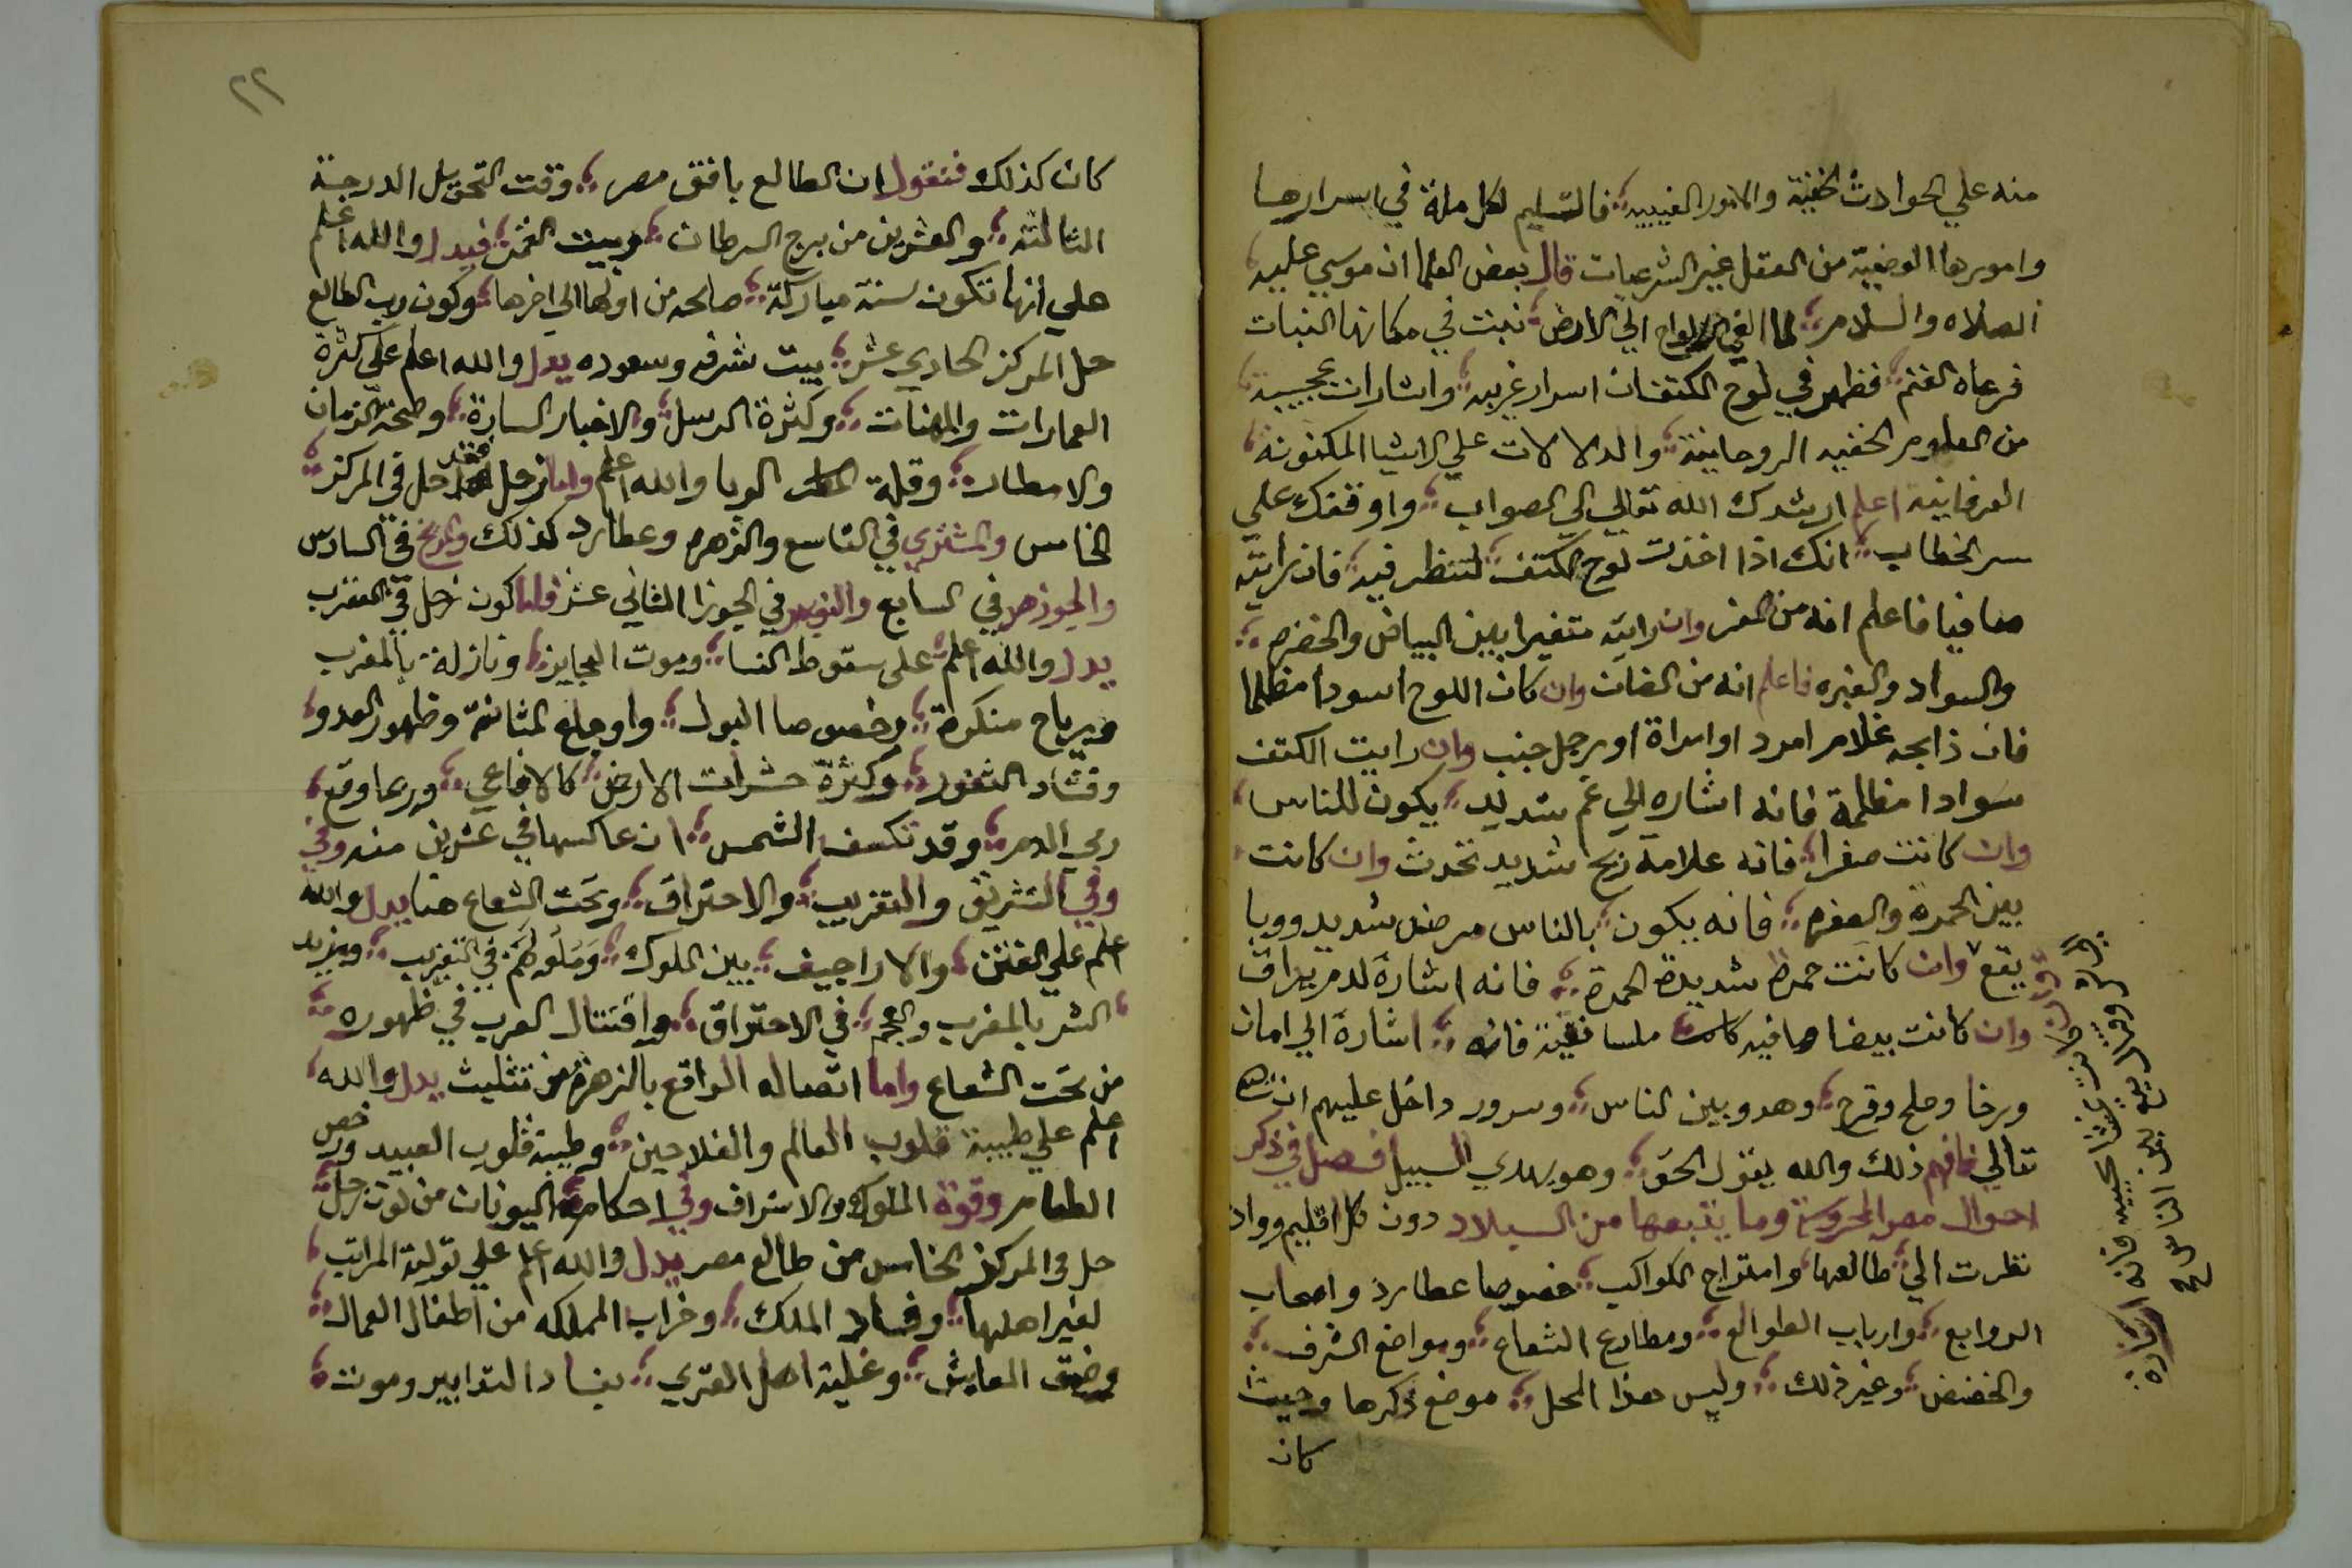 منه علي الحوادث الخفية والامور الغيبيه فالتسليم لكل ملة في اسرارها
وامورها الوضعية من العقل غير الشرعيات قال بعض العلما ان موسي عليه
الصلاه والسلام لما القي الالواح الي الارض نبت في مكانها النبات
فرعاه الغنم فظهر في لوح الكتفان اسرار غريبه واشارات عجيبة
من العلوم الخفيه الروحانية والدلالات علي الاشيا المكنونه
العرفانية اعلم ارشدك الله تعالي الي الصواب واوقفك علي
سر الخطاب انك اذا اخذت لوح الكتف لتنظر فيه فان رايته
صافيا فاعلم انه من المعز وان رايته متغيرا بين البياض والخضره
والسواد والغبره فاعلم انه من الضان وان كان اللوح اسودا مظلما
فان ذابحه غلام امرد او امراة او رجل جنب وان رايت الكتف
سوادا مظلمة فانه اشاره الي غم شديد يكون للناس
وان كانت صفرا فانه علامة ريح شديد تحدث وان كانت
بين الحمرة والصفره فانه يكون بالناس مرض شديد ووبا
يقع وان كانت حمرة شديدة الحمرة فانه اشارة لدم يراق
وان كانت بيضا صافيه كانت ملسا نقية فانه اشارة الي امان
ورخا وصلح وفرح وهدو بين الناس وسرور داخل عليهم ان شا الله
تعالي فافهم ذلك والله يقول الحق وهو يهدي السبيل فصل في ذكر
احوال مصر المحروسة وما يتبعها من البلاد دون كل اقليم ووان
نظرت الي طالعها وامتزاج الكواكب خصوصا عطارد واصحاب
الروابع وارباب الطوالع ومطارح الشعاع ومواضع الشرف
والخفض وغير ذلك وليس هذا المحل موضع ذكرها وحيث
كان
٢٢
كان كذلك فنقول ان الطالع بافق مصر وقت التحويل الدرجة
الثالثة والعشرين من برج السرطان وبيت القمر فيدل والله اعلم
علي انها تكون سنة مباركة صالحه من اولها الي اخرها وكون رب الطالع
حل المركز الحادي عشر بيت شرفه وسعوده يدل والله اعلم علي كثرة
العمارات والهنات وكثرة الرسل والاخبار السارة وصحة الزمان
والامطار وقلة الوبا والله اعلم واما زحل فقد حل في المركز
الخامس والمشتري في التاسع والزهره وعطارد كذلك والمريخ في السادس
والجوزهر في السابع والنوبهر في الجوزا الثاني عشر فلما كون زحل في العقرب
يدل والله اعلم علي سقوط النسا وموت العجايز ونازلة بالمغرب
ورياح منكرة وخصوصا البول واوجاع المثانة وظهور العدو
وفساد الثغور وكثرة حشرات الارض كالافاعي وربما وقع
رمي الدم وقد تكسف الشمس ان عاكسها في عشرين منه وفي
وفي التشريق والتغريب والاحتراق وتحت الشعاع هنا يدل والله
اعلم علي الفتن والاراجيف بين الملوك في التغريب ويزيد
الشر بالمغرب والعجم في الاحتراق واقتتال العرب في ظهوره
من تحت الشعاع واما اتصاله الواقع بالزهرة من تثليث يدل والله
اعلم علي طيبة قلوب العالم والفلاحين وطيبة قلوب العبيد ورخص
الطعام وقوة الملوك والاشراف وفي احكام اليونان من كون زحل
حل في المركز الخامس من طالع مصر يدل والله اعلم علي تولية المراتب
لغير اهلها وفساد الملك وخراب المملكه من اطفال العمال
وضيق المعايش وغلبة اهل القري بفساد التدابير وموت